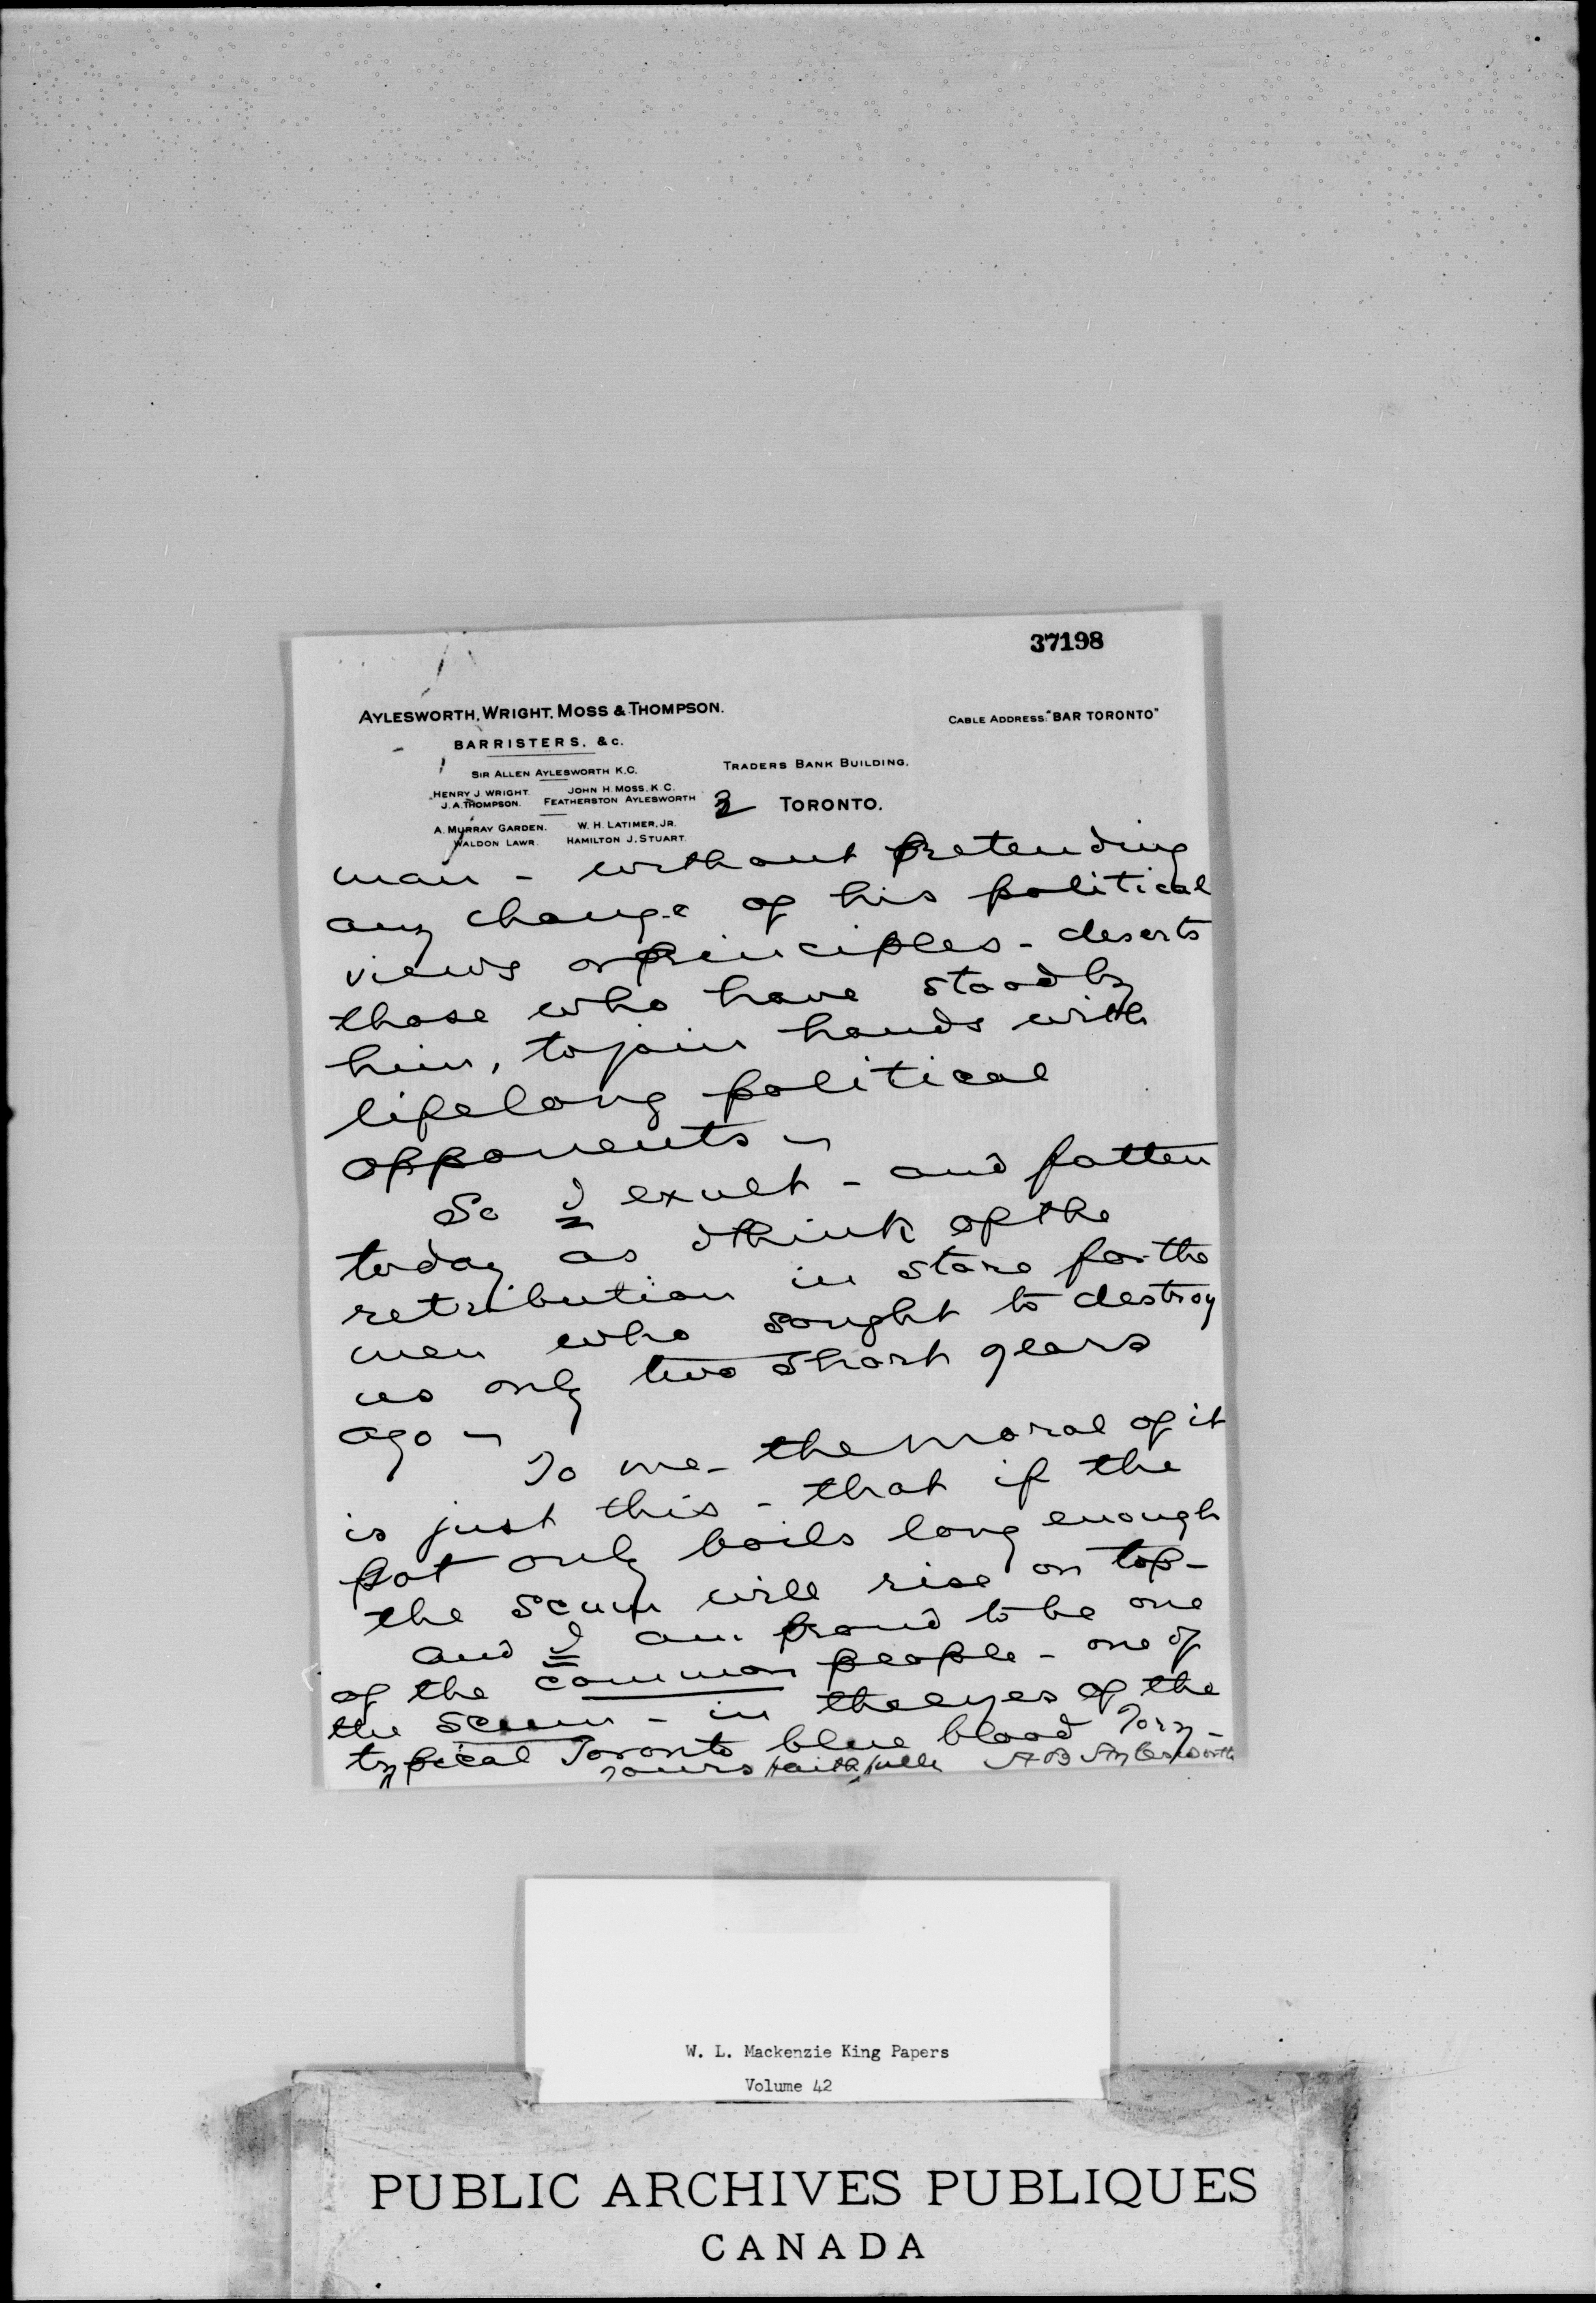 37198
AYLESWORTH, WRIGHT, MOSS & THOMPSON.
CABLE ADDRESS: "BAR TORONTO"
BARRISTERS, &c.
SIR ALLEN AYLESWORTH K.C.
TRADERS BANK BUILDING,
HENRY J. WRIGHT. JOHN H. MOSS, K.C.
J. A. THOMPSON. FEATHERSTON AYLESWORTH
3 TORONTO.
A. MURRAY GARDEN. W. H. LATIMER, JR.
WALDON LAWR. HAMILTON J. STUART.
man - without pretending
any change of his political
views or principles - deserts
those who have stood by
him, to join hands with
lifelong political
opponents -
So I exult - and fatten
today as I think of the
retribution in store for the
men who sought to destroy
us only two short years
ago -
To me - the moral of it
is just this - that if the
pot only boils long enough
the scum will rise on top -
And I am proud to be one
of the common people - one of
the scum - in the eyes of the
typical Toronto blue blood Tory -
Yours faithfully A B Aylesworth
W. L. Mackenzie King Papers
Volume 42
PUBLIC ARCHIVES PUBLIQUES
CANADA